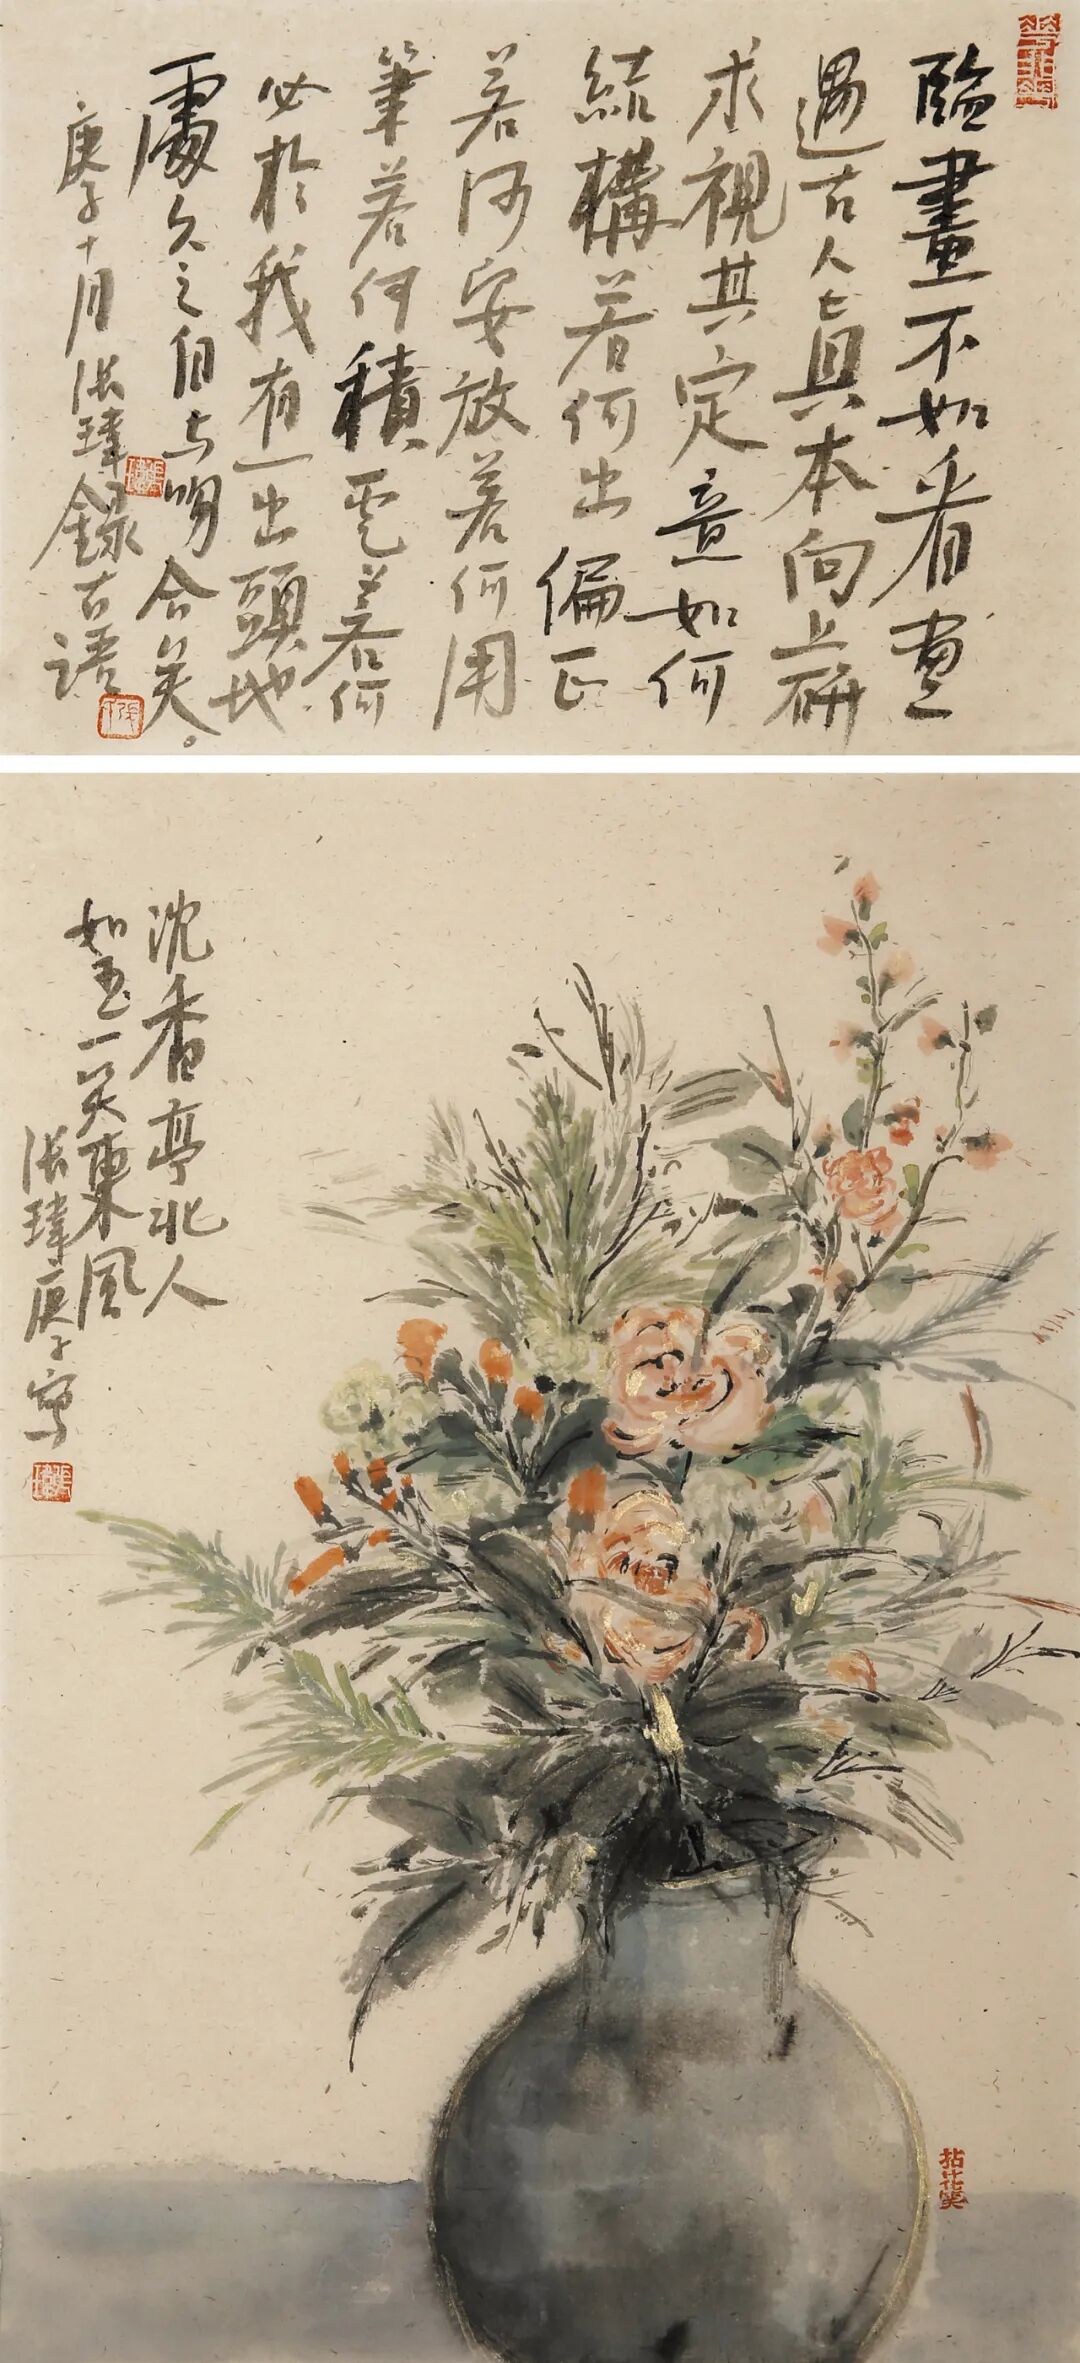 臨畫不如看畫
遇古人真本向上研
求視其定意如何
結構若何出偏正
若何安放若何用
筆若何積墨若何
必於我有一出頭地
處久之自与吻合矣
庚子十月張瑋錄古語
沈香亭北人
如玉一笑東風
張瑋庚子寫
拈花笑